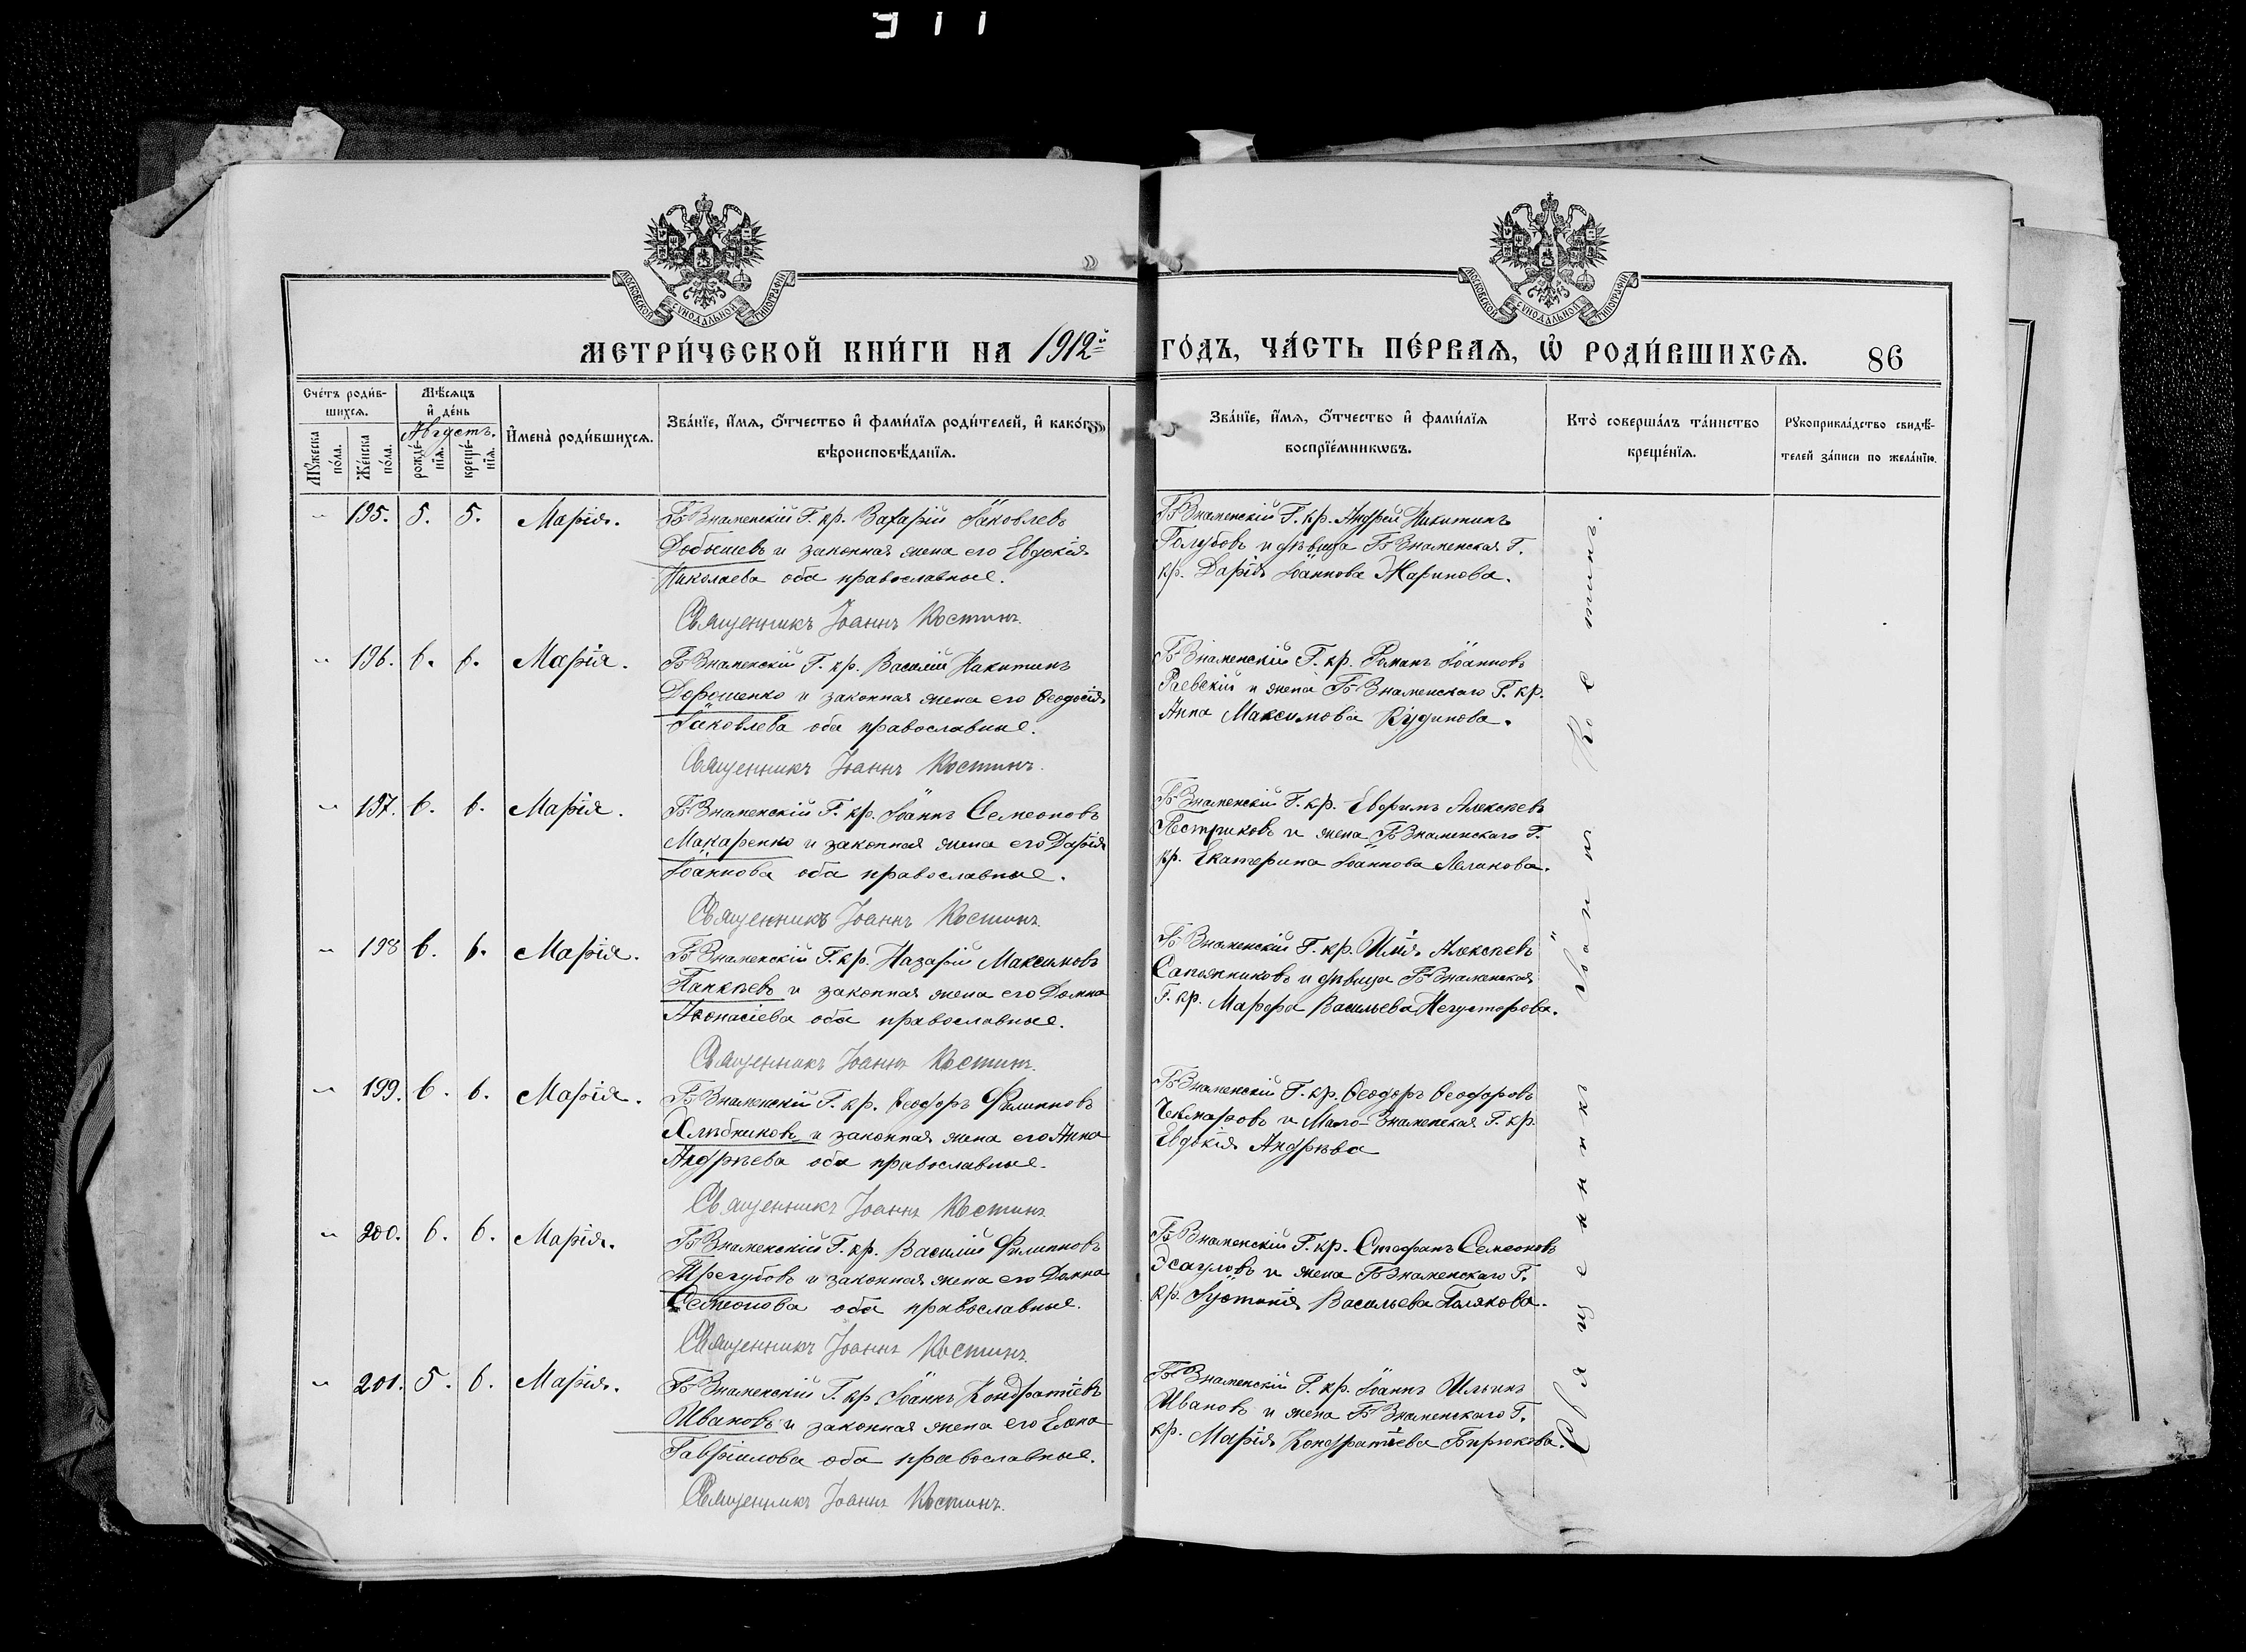 911
МОСКОВСКОЙ СѴНОДАЛЬНОЙ ТИПОГРАФІИ
МОСКОВСКОЙ СѴНОДАЛЬНОЙ ТИПОГРАФІИ
МЕТРИ́ЧЕСКОЙ КНИ́ГИ НА 1912й ГО́ДЪ, ЧА́СТЬ ПЕ́РВАѦ, Ѡ҆ РОДИ́ВШИХСѦ. 86
Сче́тъ роди́в-
шихсѧ.
Мꙋ́жеска по́ла.
Же́нска по́ла.
Мѣ́сѧцъ
и҆ де́нь
Августъ.
рожде́-нїѧ.
креще́-нїѧ.
И҆мена̀ роди́вшихсѧ.
Зва́нїе, и҆́мѧ, ѻ҆́тчество и҆ фами́лїѧ роди́телей, и҆ како́гѡ
вѣроисповѣ́данїѧ.
Зва́нїе, и҆́мѧ, ѻ҆́тчество и҆ фами́лїѧ
воспрїе́мникѡвъ.
Кто̀ соверша́лъ та́инство
креще́нїѧ.
Рꙋкоприкла́дство свидѣ́-
телей за́писи по жела́нїю.
„ 195. 5. 5. Марія.
Б-Знаменскій Г. кр. Захарій Іаковлевъ
Добышевъ и законная жена его Евдокія
Николаева оба православные.
Священникъ Іоаннъ Костинъ.
Б-Знаменскій Г. кр. Андрей Никитинъ
Голубовъ и дѣвица Б-Знаменская Г.
кр. Дарія Іоаннова Жаринова.
„ 196. 6. 6. Марія.
Б-Знаменскій Г. кр. Василій Никитинъ
Дорошенко и законная жена его Ѳеодосія
Іаковлева оба православные.
Священникъ Іоаннъ Костинъ.
Б-Знаменскій Г. кр. Романъ Іоанновъ
Раевскій и жена Б-Знаменскаго Г. кр.
Анна Максимова Рудинова.
„ 197. 6. 6. Марія.
Б-Знаменскій Г. кр. Іоаннъ Семеоновъ
Макаренко и законная жена его Дарія
Іоаннова оба православные.
Священникъ Іоаннъ Костинъ.
Б-Знаменскій Г. кр. Евфимъ Алексѣевъ
Пестриковъ и жена Б-Знаменскаго Г.
кр. Екатерина Іоаннова
„ 198 6. 6. Марія.
Б-Знаменскій Г. кр. Назарій Максимовъ
Панкѣевъ и законная жена его Домна
Аѳонасіева оба православные.
Священникъ Іоаннъ Костинъ.
Б-Знаменскій Г. кр. Илія Алексѣевъ
Сапожниковъ и дѣвица Б-Знаменская
Г. кр. Марфа Васильева
„ 199. 6. 6. Марія.
Б-Знаменскій Г. кр. Ѳеодоръ Филипповъ
Хлѣбниковъ и законная жена его Анна
Андрѣева оба православные.
Священникъ Іоаннъ Костинъ
Б-Знаменскій Г. кр. Ѳеодоръ Ѳеодоровъ
Чекмаровъ и Мало-Знаменская Г. кр.
Евдокія Андрѣва
„ 200. 6. 6. Марія.
Б-Знаменскій Г. кр. Василій Филипповъ
Трегубовъ и законная жена его Домна
Семеонова оба православные.
Священникъ Іоаннъ Костинъ.
Б-Знаменскій Г. кр. Стефанъ Семеоновъ
Эсауловъ и жена Б-Знаменскаго Г.
кр. Іустинія Васильева Полякова.
„ 201. 5. 6. Марія.
Б-Знаменскій Г. кр Іоаннъ Кондратіевъ
Ивановъ и законная жена его Елена
Гавріилова оба православные.
Священникъ Іоаннъ Костинъ.
Б-Знаменскій Г. кр. Іоаннъ Ильинъ
Ивановъ и жена Б-Знаменскаго Г.
кр. Марія Кондратіева Бирюкова.
Священникъ Іоаннъ Костинъ.